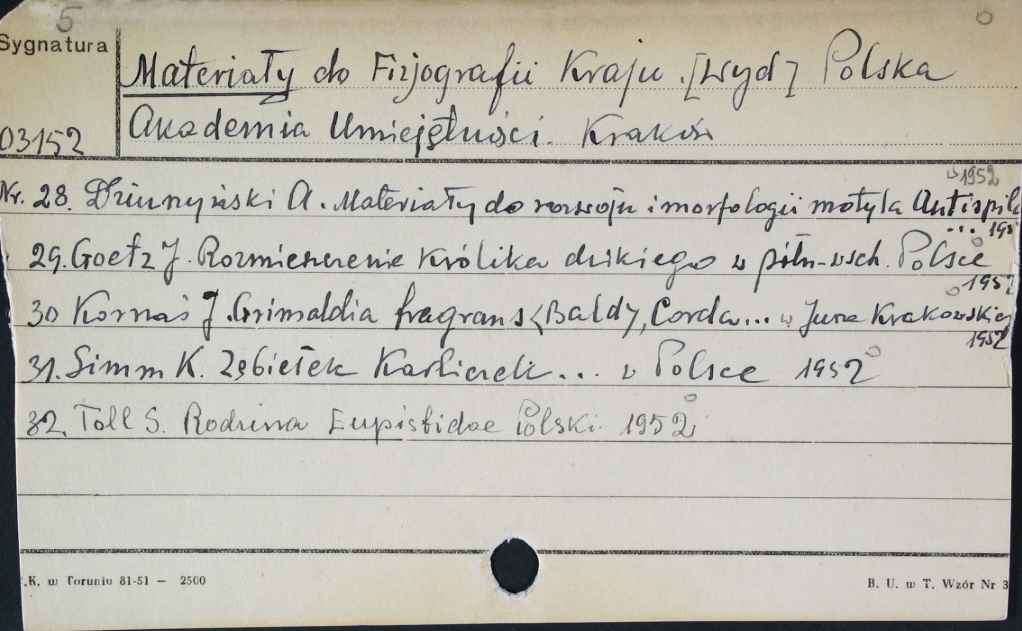 5
Sygnatura
Materiały do Fizjografii Kraju. [wyd] Polska
03152
Akademia Umiejętności. Kraków
1952
Nr. 28. Dziurzyński A. Materiały do rozwoju i morfologii motyla Antispila
... 195
29. Goetz J. Rozmieszczenie królika dzikiego w półn-wsch. Polsce
1952
30 Kornaś J. Grimaldia fragrans <Bald>, Corda... w Jurze Krakowskiej
1952
31. Simm K. Ząbiełek Karliczek... w Polsce 1952
32. Toll S. Rodzina Eupistidae Polski. 1952
.K. w Toruniu 81-51 — 2500
B. U. w T. Wzór Nr 3